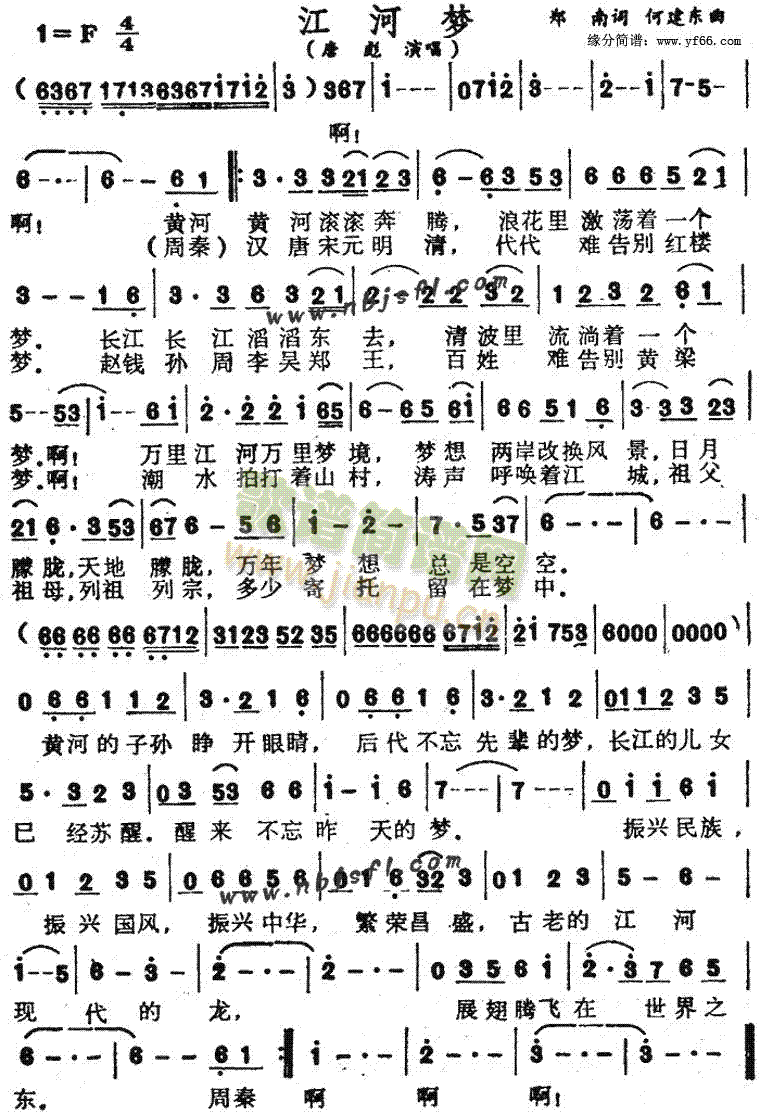 江河梦
1=F 4/4
郑 南词 何建东曲
(唐 彪 演唱)
缘分简谱:www.yf66.com
(6367 1713636717 1712 3) 367 1--- 0712 3--- 2--1 7-5-
啊!
6-·- 6-- 61 3·3321 23 6-6353 666521
啊! 黄河 黄 河滚滚奔 腾, 浪花里 激荡着一个
(周秦)汉 唐宋元明 清, 代代 难告别红楼
3--16 3·36321 2-2232 1232261
www.nbjsfl.com
梦. 长江 长 江滔滔东 去, 清波里 流淌着 一个
梦. 赵钱 孙 周李吴郑 王, 百姓 难告别黄梁
5--53 1--61 2·22165 6-6561 66516 33323
梦.啊! 万里江 河万里梦境, 梦想 两岸改换风 景,日月
梦.啊! 潮 水 拍打着山村, 涛声 呼唤着江 城,祖父
216·353 676-56 1-2- 7·537 6-·- 6-·-
歌谱简谱网
www.jianpu.cn
朦胧,天地 朦胧, 万年 梦 想 总 是空 空.
祖母,列祖 列宗, 多少 寄 托 留 在梦 中.
(66 66 66 6712 3123 52 35 666666 6712 21 753 6000 0000)
0 66112 3·216 06616 3·212 0112 35
黄河的子孙 睁 开眼睛, 后代不忘 先 辈的梦,长江的儿女
5·323 035366 1-16 7--- 7--- 01161
已 经苏醒.醒来 不忘昨 天的梦. 振兴民族,
01235 06656 016323 0123 5-6-
www.nbjsfl.com
振兴国风, 振兴中华, 繁荣昌 盛, 古老的 江 河
1--5 6-3- 2-·- 2-·- 03561 2·3765
现 代 的 龙, 展翅腾飞在 世界之
6-·- 6--61 1-·- 2-·- 3-·- 3-·-
东. 周秦 啊 啊 啊!